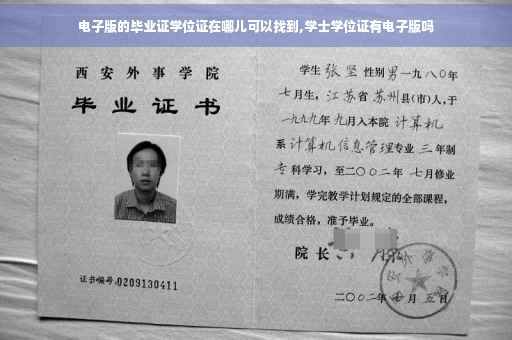 电子版的毕业证学位证在哪儿可以找到,学士学位证有电子版吗
西安外事学院
毕业证书
证书编号:0209130411
学生 张坚 性别 男 一九八〇年
七月生, 江苏省 苏州县(市)人,于
一九九九年 九月入本院 计算机
系 计算机信息管理专业 三 年制
专科学习, 至二〇〇二年 七月修业
期满, 学完教学计划规定的全部课程,
成绩合格, 准予毕业。
院长
二〇〇二年 月 五日